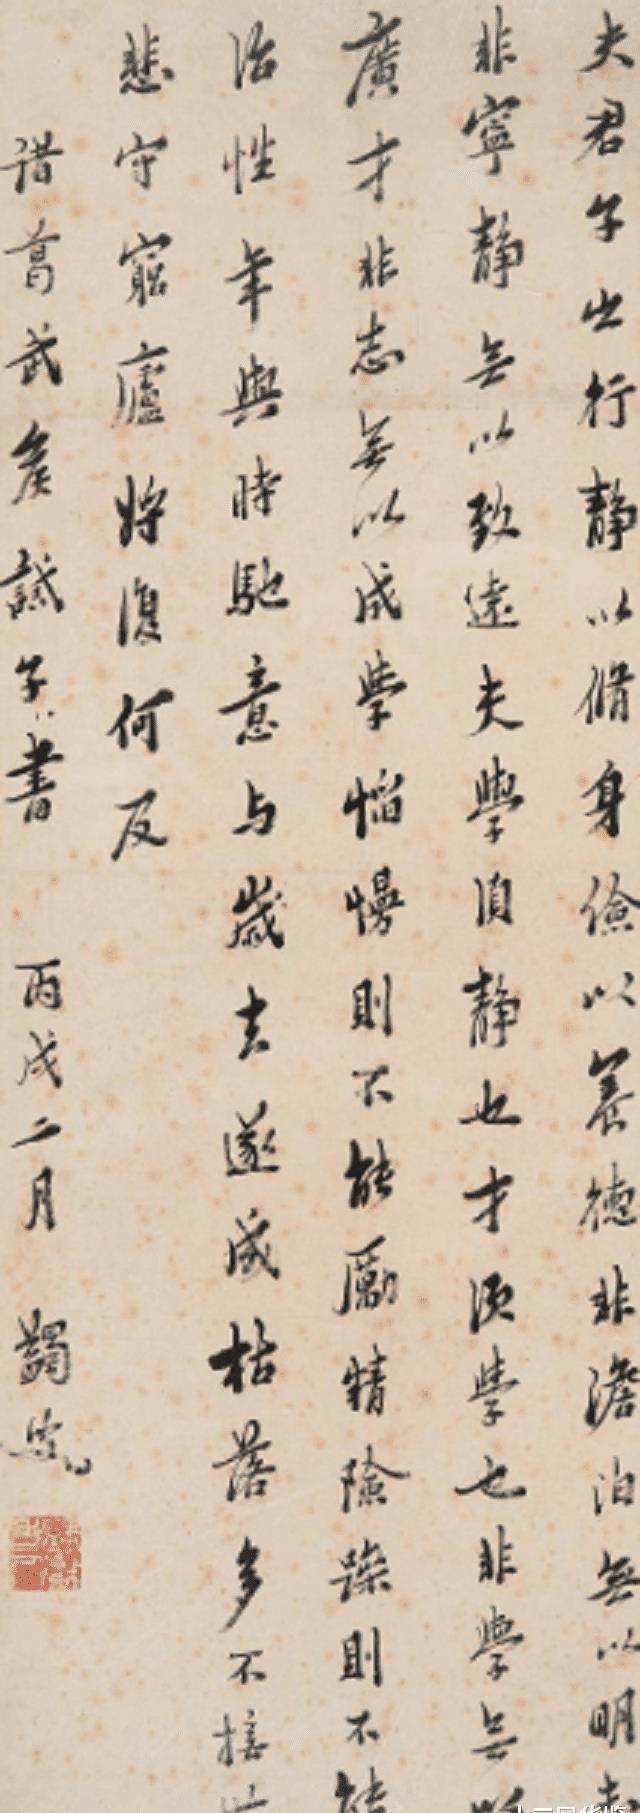 夫君子之行静以脩身儉以養德非澹泊無以明志
非寧靜無以致遠夫學須靜也才須學也非學無以
廣才非志無以成學慆慢則不能勵精險躁則不能
治性年與時馳意与歲去遂成枯落多不接世
悲守窮廬將復何及
諸葛武侯誡子書 丙戌二月 蠲叟